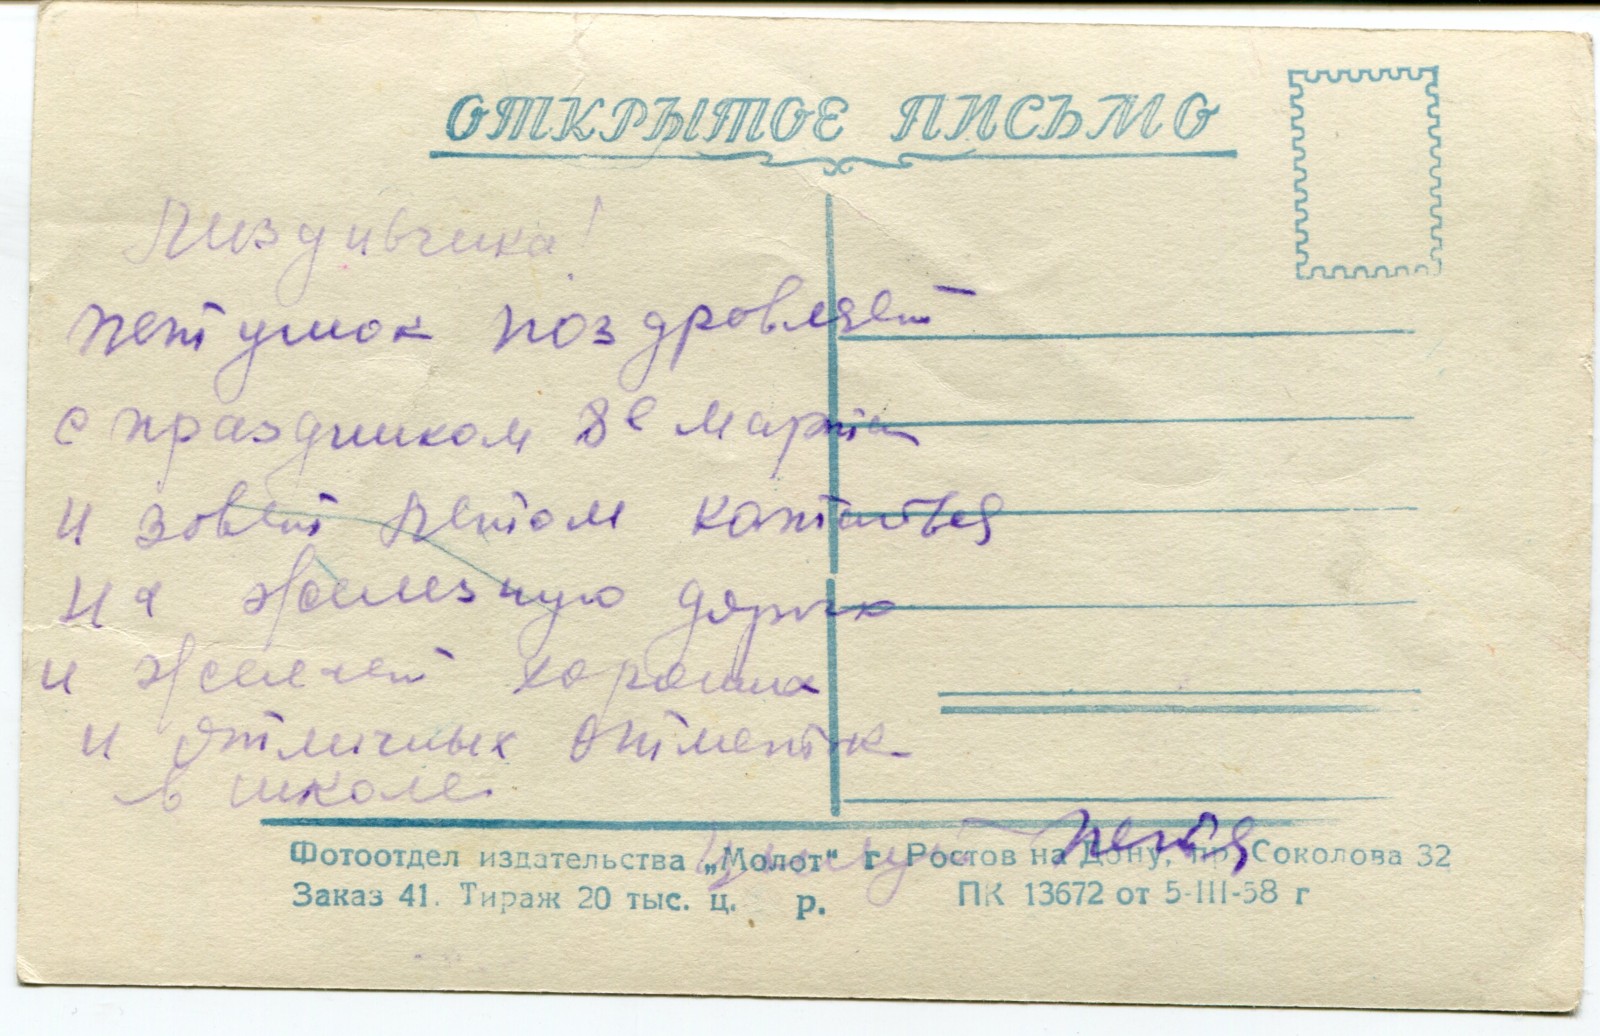 ОТКРЫТОЕ ПИСЬМО
Петушок поздровляет
с праздником 8е марта
и зовет летом кататься
на железную дорогу
и желает хороших
и отличных отметок
в школе.
Целую Петя
Фотоотдел издательства „Молот“ г Ростов на Дону, пр. Соколова 32
Заказ 41. Тираж 20 тыс. ц. р. ПК 13672 от 5-III-58 г